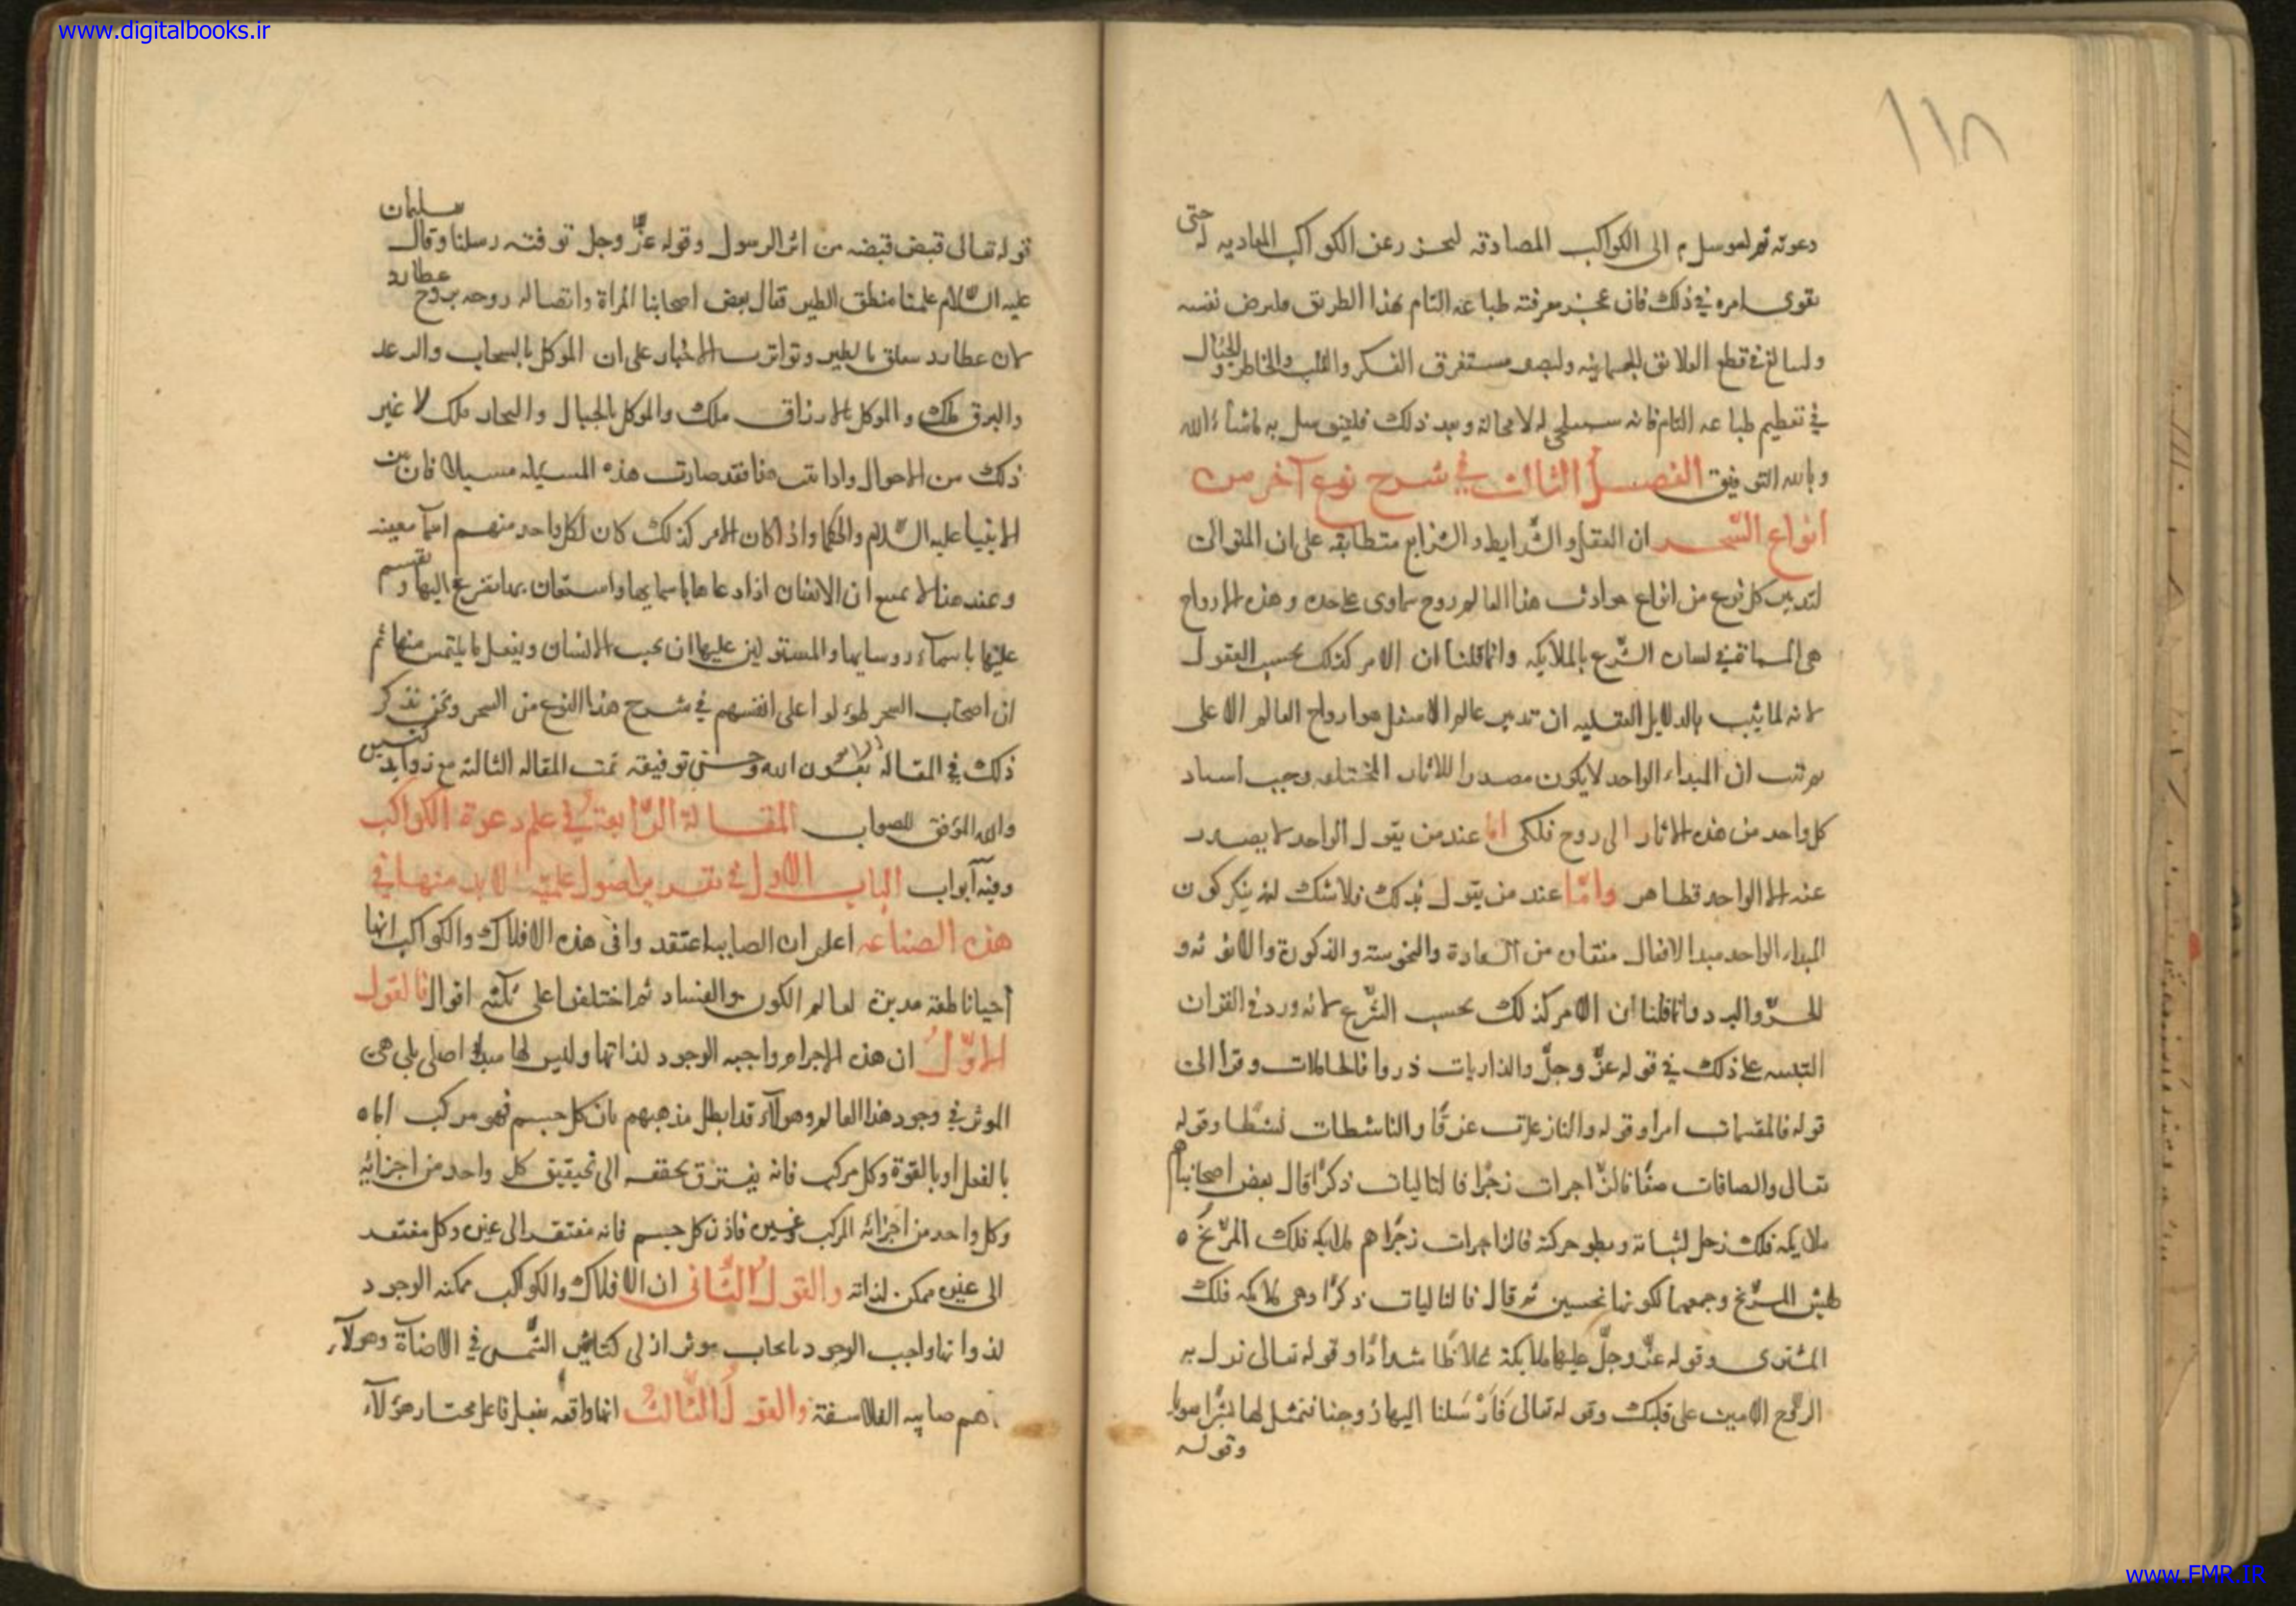 www.digitalbooks.ir
١١٨
دعوته ثم الى الكواكب المصادقه عن الكواكب المعاديه له حتى
يقوى امره في ذلك فان عجز معرفته طباعه التام بهذا الطريق نفسه
في قطع العلائق الجسمانيه مستغرق الفكر والقلب والخاطر والخيال
في تعظيم طباعه التام فانه له لا محالة وبعد ذلك به ما شاء الله
وبالله التوفيق الفصل الثالث في شرح نوع آخر من
انواع السّحر ان العقل والشرايط والشرايع متطابقه على ان المتوالى
لتدبير كل نوع من انواع حوادث هذا العالم روح سماوى على حده وهذه الارواح
هى المسماة في لسان الشّرع بالملايكه وانما قلنا ان الامر كذلك بحسب العقول
لانه لما ثبت بالدلايل العقليه ان تدبير عالم الاسفل هو ارواح العالم الاعلى
ثم ثبت ان المبداء الواحد لا يكون مصدرا للاثار المختلفه وجب اسناد
كل واحد من هذه الاثار الى روح فلكى اما عند من يقول الواحد لا يصدر
عنه الا الواحد فظاهر وامّا عند من يقول بذلك فلاشك انه ينكر كون
المبداء الواحد مبدا لافعال من السعادة والنحوسته والذكورة والانوثه و
للحرّ والبرد وانما قلنا ان الامر كذلك بحسب الشّرع لانه ورد في القران
التنبيه على ذلك في قوله عزّ وجلّ والذاريات ذروا فالحاملات وقرا الى
قوله فالمقسمات امرا وقوله والنازعات غرقًا والناشطات نشطا وقوله
تعالى والصافات صفًا فالزّاجرات زجرًا فالتاليات ذكرًا قال بعض اصحابنا هم
ملايكه فلك زحل لثباته وبطو حركته فالزاجرات زجرًا هم ملايكه فلك المرّيخ ٥
لطيش المرّيخ وجمعهما لكونهما نحسين ثم قال فالتاليات ذكرًا وهى ملايكه فلك
المشترى وقوله عزّ وجلّ عليها ملايكة غلاظا شدادًا وقوله تعالى نزل به
الرّوح الامين على قلبك وقوله تعالى فَاَرْسَلنا اليها روحنا فتمثل لها بشرًا سويا
وقوله
قوله تعالى قبض قبضه من اثر الرسول وقوله عزّ وجل توفته رسلنا وقال سليمان
عليه السّلام علمنا منطق الطير فقال بعض اصحابنا المراة واتصاله روحه بروح عطارد
لان عطارد متعلق بالطير وتواترت الاخبار على ان الموكل بالسحاب والرعد
والبرق ملك والموكل بالارزاق ملك والموكل بالجبال والبحار ملك لا غير
ذلك من الاحوال واذا ثبت هذا فقد صارت هذه المسئله فان من
الانبيا عليه السّلام والحكما واذا كان الامر كذلك كان لكل واحد منهم اسمآ معينه
وعند هذا لا يمتنع ان الانسان اذا دعاها باسمايها واستعان بها تضرع اليها وتقسم
عليها باسمآء روسايها والمستولين عليها ان يجيب الانسان ويفعل ما يلتمس منها ثم
ان اصحاب السحر على انفسهم في شرح هذا النوع من السحر ونحن نذكر
ذلك في المقالة الرابعة بعون الله وحسن توفيقه تمت المقاله الثالثه مع زوايد
والله الموفق للصواب المقالة الرّابعة في علم دعوة الكواكب
وفيه آبواب الباب الاول في تقدير اصول علميّة لا بد منها في
هذه الصناعه اعلم ان الصابيه اعتقدوا فى هذه الافلاك والكواكب انها
أحيا ناطقة مدبرة لعالم الكون والفساد ثم اختلفوا على ثلثه اقوال فالقول
الاوّل ان هذه الاجرام واجبه الوجود لذاتها وليس لها مبدا اصلى بلى هى
الموثر في وجود هذا العالم وهولآء قد ابطل مذهبهم بان كل جسم فهو مركب اما
بالفعل او بالقوة وكل مركب فانه يفتقر الى تحقيق كل واحد من اجزائه
وكل واحد من اجزائه المركب غيره فاذن كل جسم فانه مفتقر الى غيره وكل مفتقر
الى غيره ممكن لذاته والقول الثّانى ان الافلاك والكواكب ممكنه الوجود
لذواتها واجب الوجود بايجاب موثر ازلى كتاثير الشّمس في الاضآة وهولآء
هم صابيه الفلاسفة والقول الثّالث انها واقعه بفعل فاعل مختار هولآء
www.FMR.IR